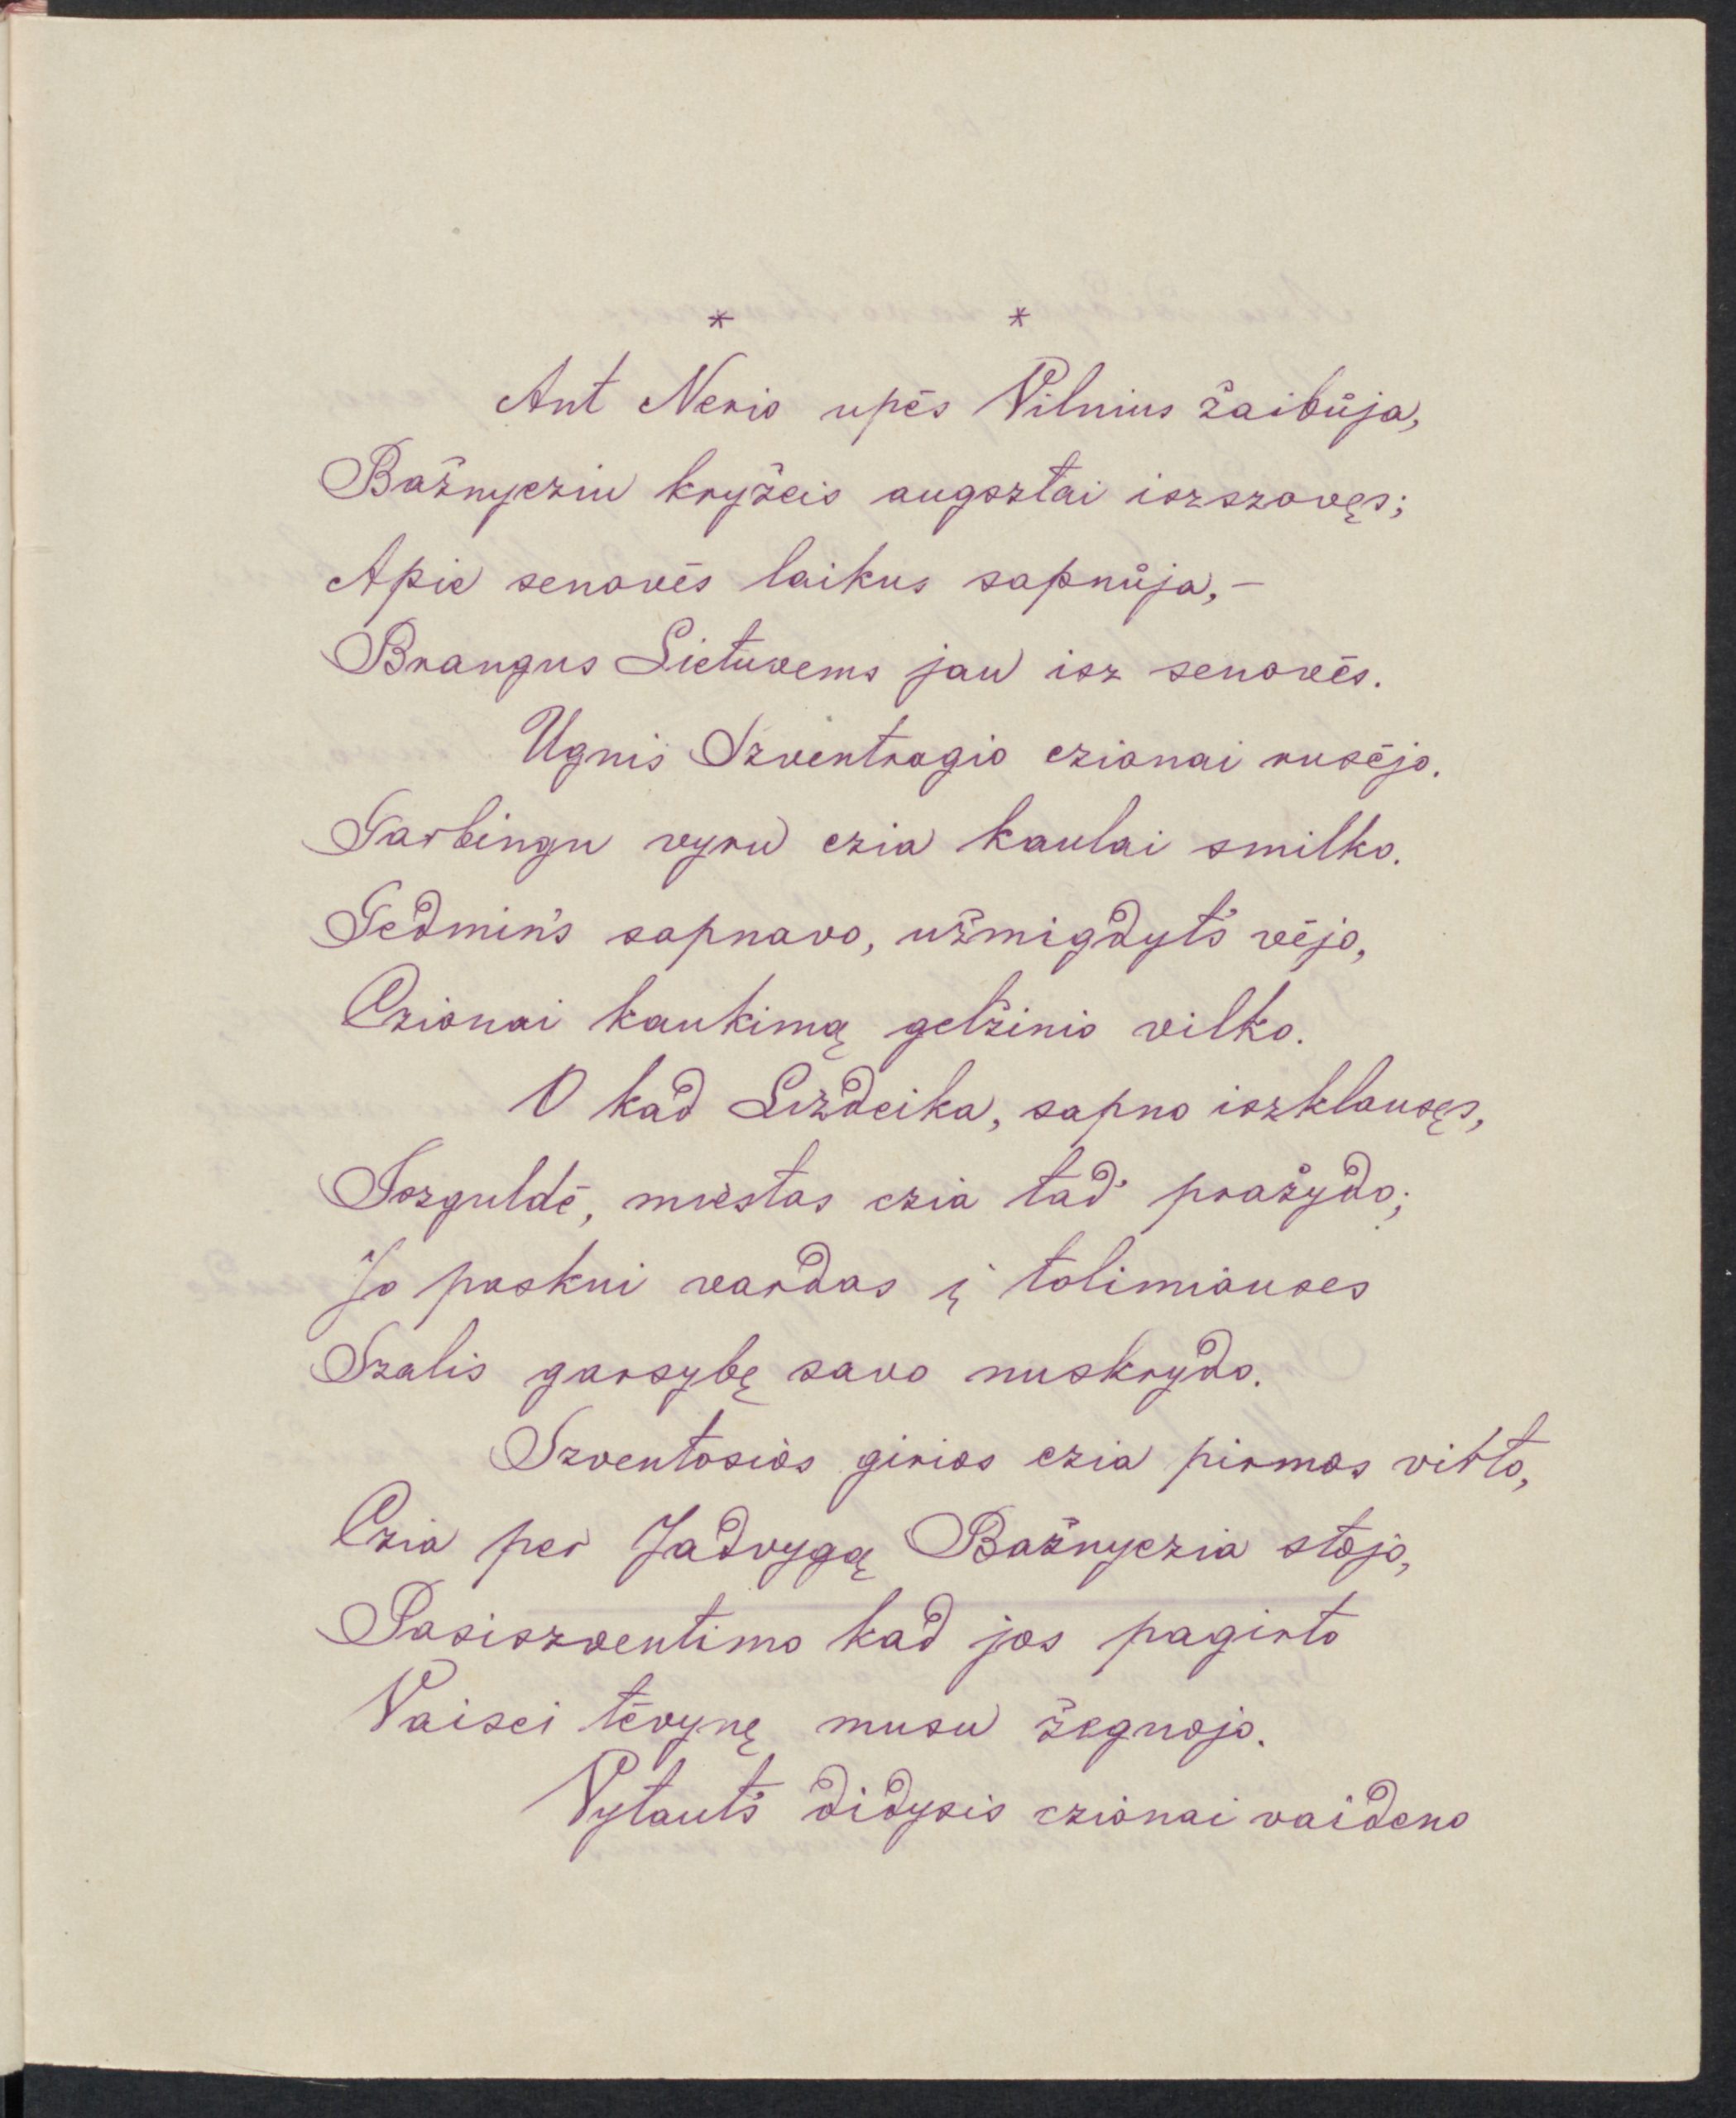 * *
Ant Nerio upės Vilnius žaibůja,
Bažnycziu kryžeis augsztai iszszovęs;
Apie senovės laikus sapnůja,—
Brangus Lietuvems jau isz senovės.
Ugnis Szventragio czionai rusėjo.
Garbingu vyru czia kaulai smilko.
Gedmin's sapnavo, užmigdyt's vėjo,
Czionai kaukimą gelžinio vilko.
O kad Lizdeika, sapno iszklausęs,
Iszguldė, miestas czia tad' pražydo;
Jo paskui vardas į tolimiauses
Szalis garsybę savo nuskrydo.
Szventosios girios czia pirmos virto,
Czia per Jadvygą Bažnyczia stojo,
Pasiszventimo kad jos pagirto
Vaisei tėvynę musu žegnojo.
Vytaut's didysis czionai vaideno